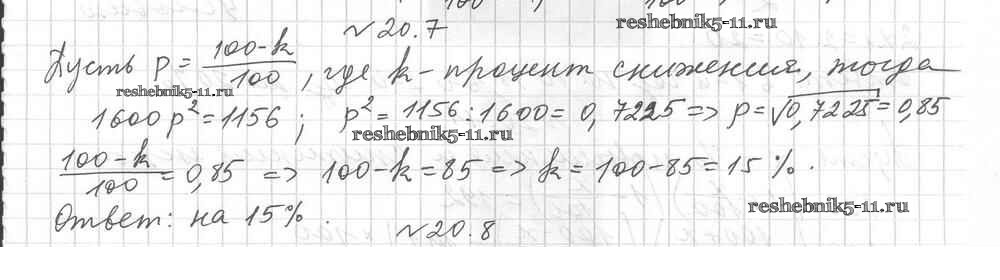 reshebnik5-11.ru
№20.7
Пусть p = (100-k)/100, где k - процент снижения, тогда
reshebnik5-11.ru
1600p² = 1156; p² = 1156:1600 = 0,7225 => p = √0,7225 = 0,85
reshebnik5-11.ru
(100-k)/100 = 0,85 => 100-k = 85 => k = 100-85 = 15%.
reshebnik5-11.ru
Ответ: на 15%.
№20.8